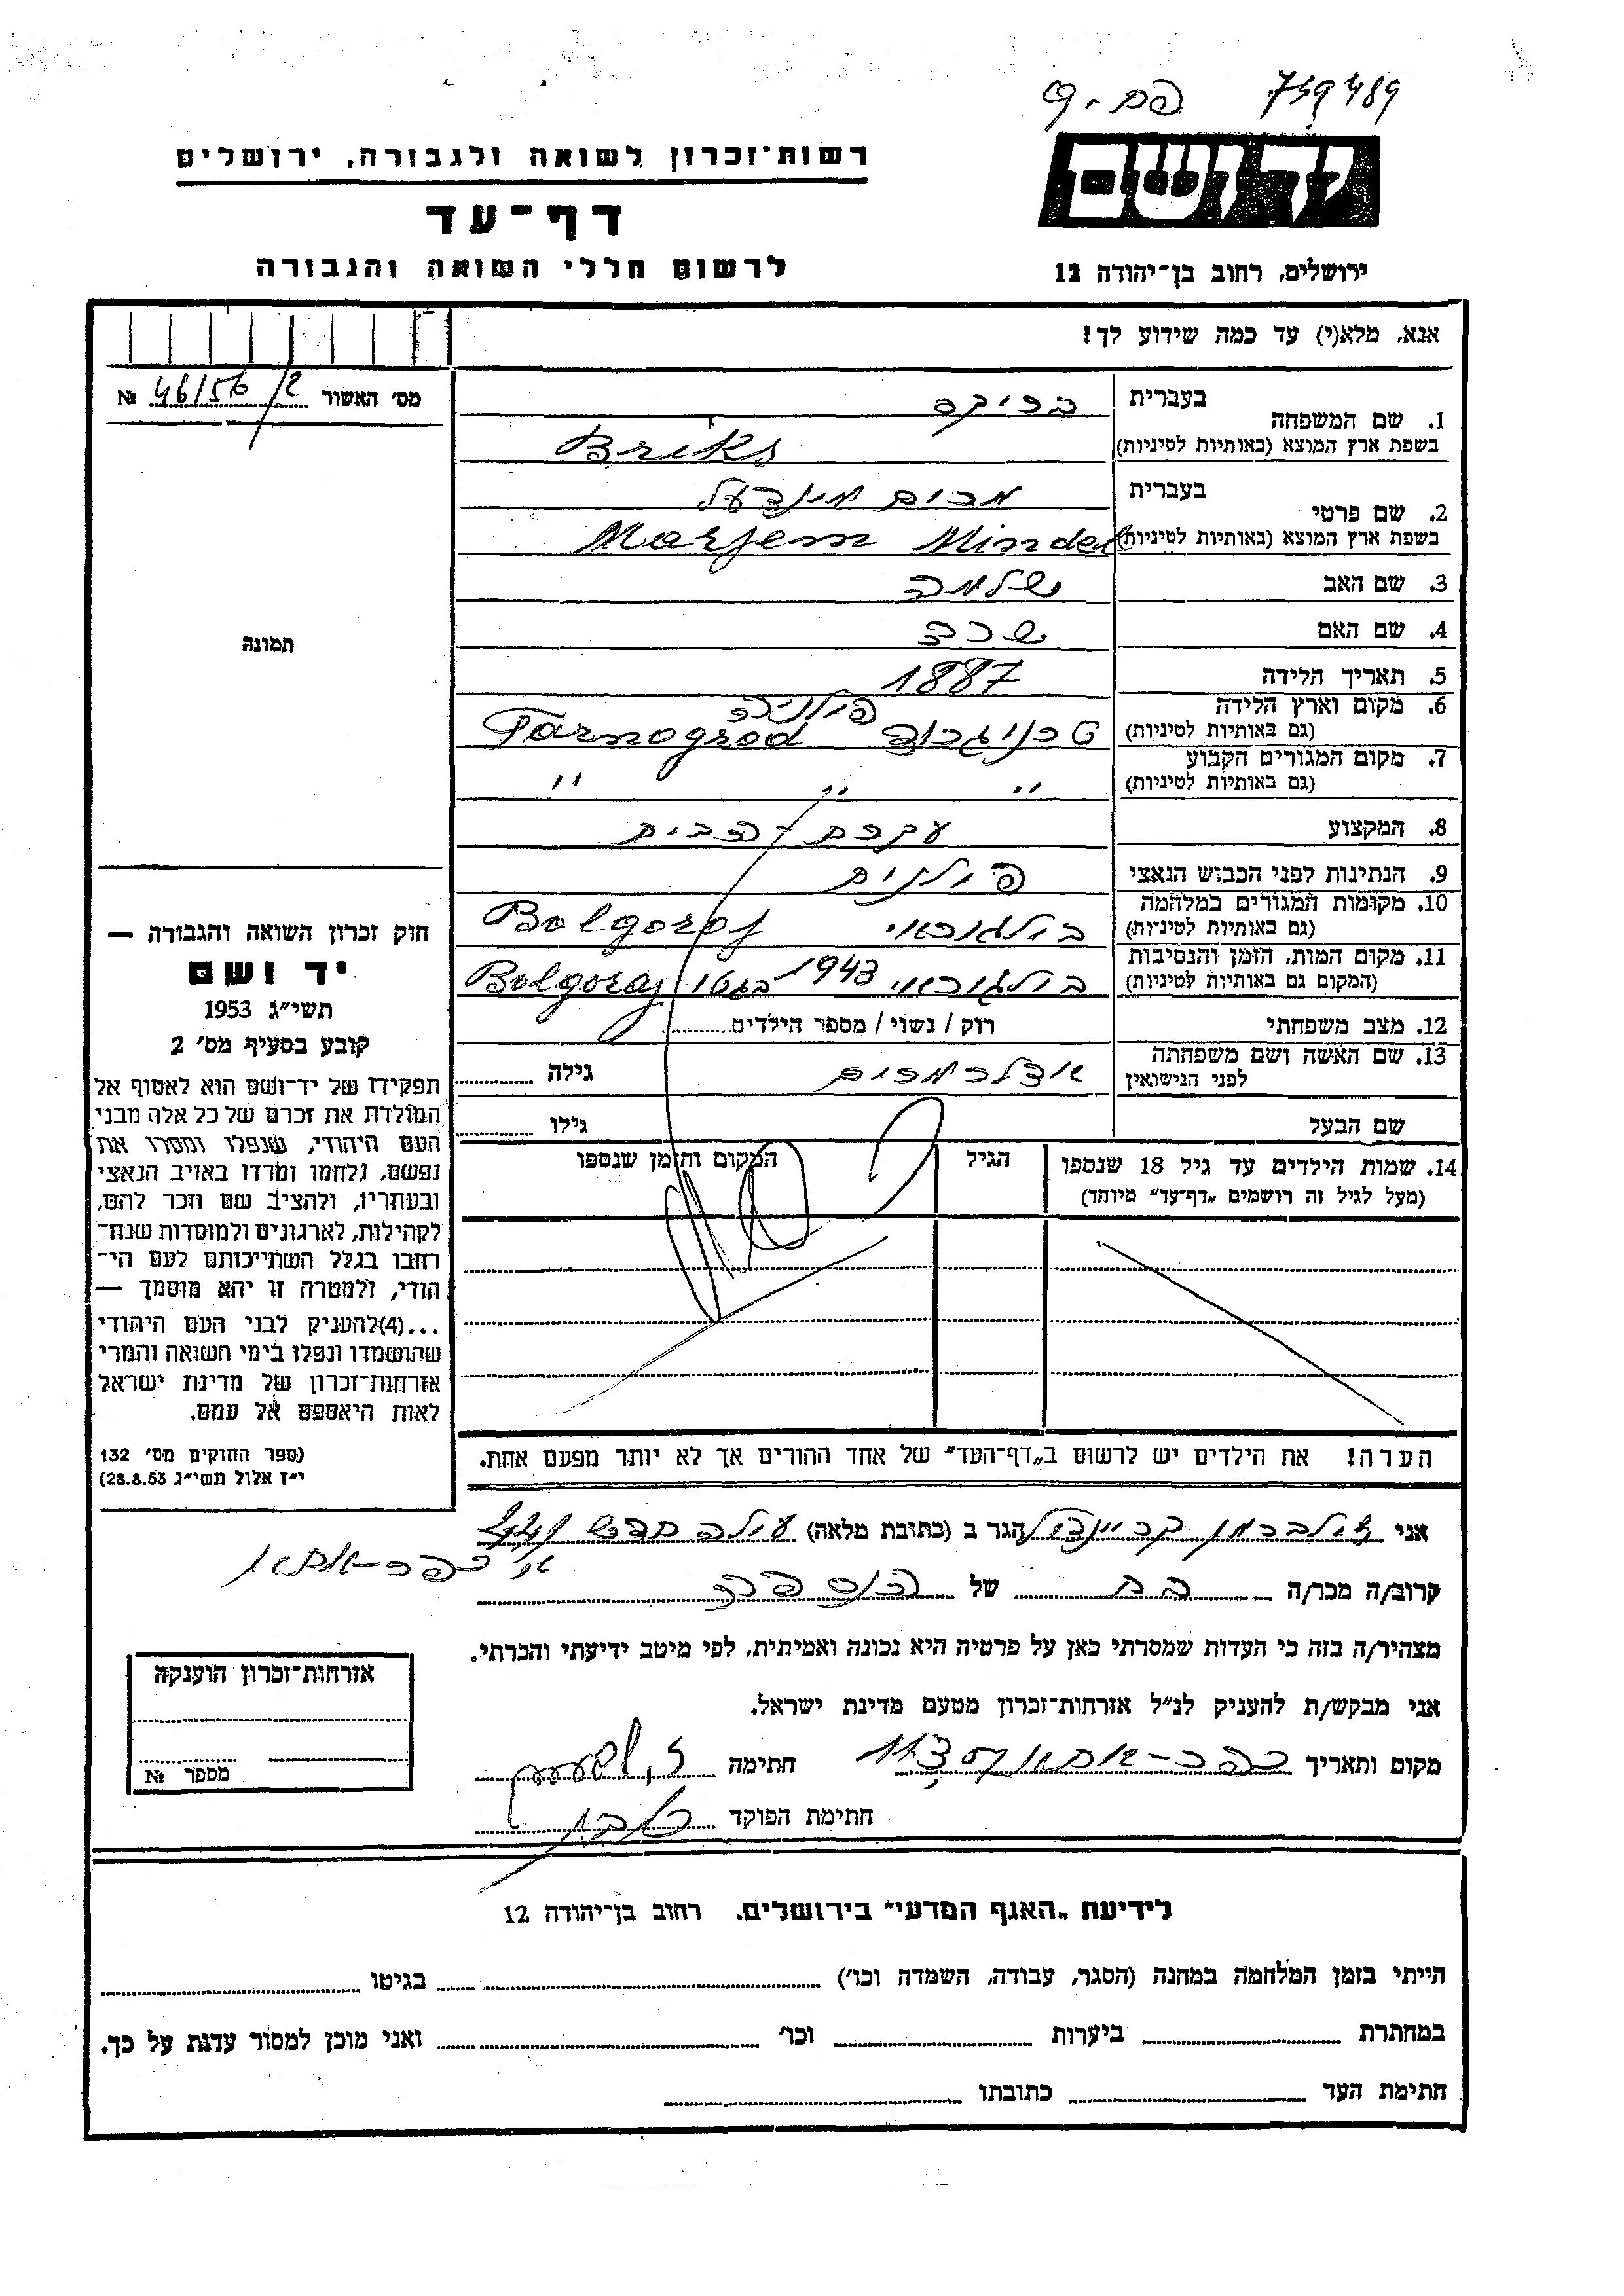 739489
יד ושם
רשות־זכרון לשואה ולגבורה, ירושלים
דף־עד
לרשום חללי השואה והגבורה
ירושלים, רחוב בן־יהודה 12
אנא, מלא(י) עד כמה שידוע לך!
מס׳ האשור 46/56/2 №
תמונה
1. שם המשפחה בעברית בריקס
בשפת ארץ המוצא (באותיות לטיניות) Briks
2. שם פרטי בעברית מרים מינדעל
בשפת ארץ המוצא (באותיות לטיניות) Marjem Mindel
3. שם האב שלמה
4. שם האם שרה
5. תאריך הלידה 1887
6. מקום וארץ הלידה (גם באותיות לטיניות) טרניגרוד פולניה Tarnogrod
7. מקום המגורים הקבוע (גם באותיות לטיניות) " " "
8. המקצוע עקרת-הבית
9. הנתינות לפני הכבוש הנאצי פולנית
10. מקומות המגורים במלחמה (גם באותיות לטיניות) בילגוראי Bolgoraj
11. מקום המות, הזמן והנסיבות (המקום גם באותיות לטיניות) בילגוראי 1943 בגטו Bolgoraj
12. מצב משפחתי רוק / נשוי / מספר הילדים
13. שם האשה ושם משפחתה לפני הנישואין גילה
שם הבעל גילו
14. שמות הילדים עד גיל 18 שנספו הגיל המקום והזמן שנספו
(מעל לגיל זה רושמים „דף־עד״ מיוחד)
הערה! את הילדים יש לרשום ב„דף־העד״ של אחד ההורים אך לא יותר מפעם אחת.
חוק זכרון השואה והגבורה —
יד ושם
תשי״ג 1953
קובע בסעיף מס׳ 2
תפקידו של יד־ושם הוא לאסוף אל
המולדת את זכרם של כל אלה מבני
העם היהודי, שנפלו ומסרו את
נפשם, נלחמו ומרדו באויב הנאצי
ובעוזריו, ולהציב שם וזכר להם,
לקהילות, לארגונים ולמוסדות שנח־
רחבו בגלל השתייכותם לעם הי־
הודי, ולמטרה זו יהא מוסמך —
...(4)להעניק לבני העם היהודי
שהושמדו ונפלו בימי השואה והמרי
אזרחות־זכרון של מדינת ישראל
לאות היאספם אל עמם.
(ספר החוקים מס׳ 132
י״ז אלול תשי״ג 28.8.53)
אני זילברמן קריינדל הגר ב (כתובת מלאה) עולה חדש
כפר-אתא
קרוב/ה מכר/ה בת של הנספה
מצהיר/ה בזה כי העדות שמסרתי כאן על פרטיה היא נכונה ואמיתית, לפי מיטב ידיעתי והכרתי.
אני מבקש/ת להעניק לנ״ל אזרחות־זכרון מטעם מדינת ישראל.
מקום ותאריך כפר-אתא חתימה
חתימת הפוקד
אזרחות־זכרון הוענקה
מספר №
לידיעת „האגף המדעי״ בירושלים. רחוב בן־יהודה 12
הייתי בזמן המלחמה במחנה (הסגר, עבודה, השמדה וכו׳) בגיטו
במחתרת ביערות וכו׳ ואני מוכן למסור עדות על כך.
חתימת העד כתובתו